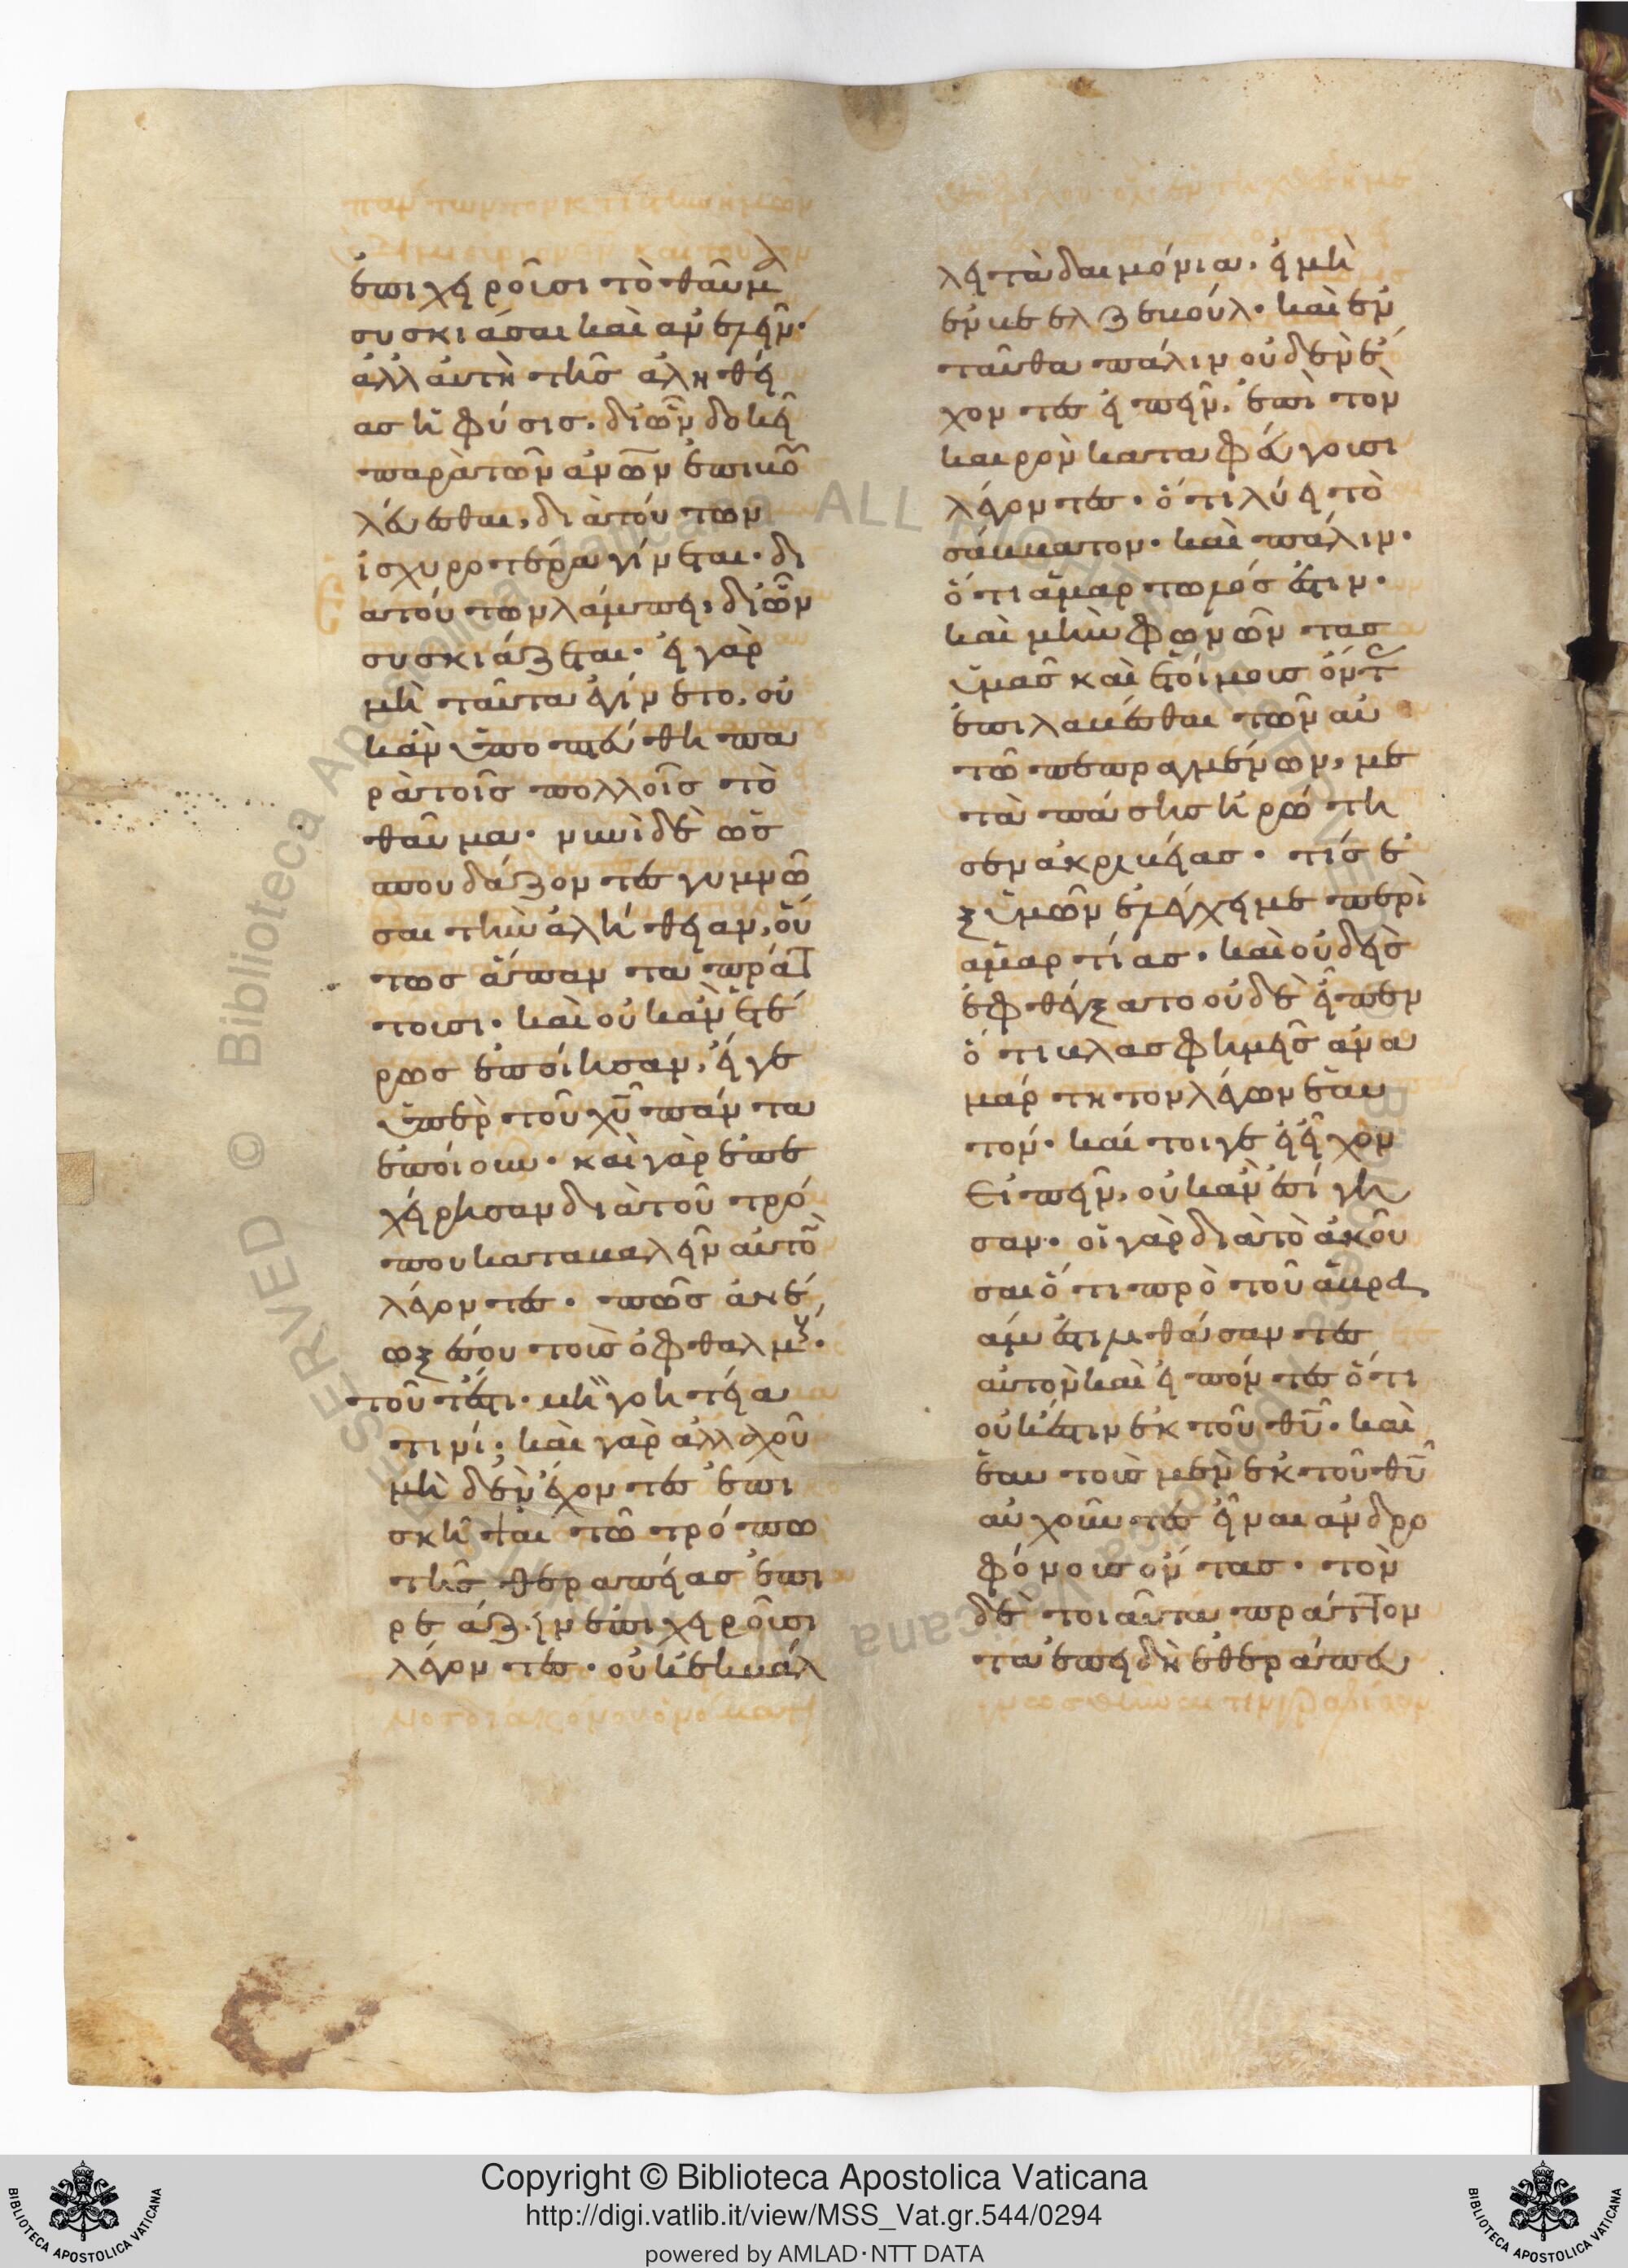 ἐπιχειροῦσι τὸ θαῦμα
συσκιάσαι καὶ ἀνελεῖν·
ἀλλ' αὐτὴ τῆς ἀληθεί
ας ἡ φύσις· δι' ὧν δοκεῖ
παρὰ τῶν ἀνων ἐπιβου
λεύεσθαι, διὰ τούτων
ἰσχυροτέρα γίνεται· δι
α τούτων λάμπει, δι' ὧν
συσκιάζεται· εἰ γὰρ
μὴ ταῦτα ἐγίνετο, οὐ
κἂν ὑπωπτεύθη πα
ρὰ τοῖς πολλοῖς τὸ
θαῦμα· νυνὶ δὲ ὡς
σπουδάζοντες γυμνῶ
σαι τὴν ἀλήθειαν, οὕ
τως ἅπαντα πράτ
τουσι· καὶ οὐκ ἂν ἑτέ
ρως ἐποίησαν, εἴγε
ὑπὲρ τοῦ χυ πάντα
ἐποίουν· καὶ γὰρ ἐπε
χείρησαν διὰ τοῦ τρό
που καταβαλεῖν αὐτὸν
λέγοντες· πῶς ἀνέ
ῳξέ σου τοὺς ὀφθαλμούς·
τοῦτέστι· μὴ γοητεία
τινί· καὶ γὰρ ἀλλαχοῦ
μηδὲν ἔχοντες ἐπι
σκῆψαι τῷ τρόπῳ
τῆς θεραπείας ἐπη
ρεάζειν ἐπιχειροῦσι
λέγοντες· οὐκ ἐκβάλ
λει τὰ δαιμόνια, εἰ μὴ
ἐν βεελζεβούλ· καὶ ἐν
ταῦθα πάλιν οὐδὲν ἔ
χοντες εἰπεῖν, ἐπὶ τὸν
καιρὸν καταφεύγουσι
λέγοντες· ὅτι λύει τὸ
σάββατον· καὶ πάλιν·
ὅτι ἁμαρτωλός ἐστιν·
καὶ μὴν φθονοῦντας
ὑμᾶς καὶ ἑτοίμους ὄντας
ἐπιλαβέσθαι τῶν αὐ
τῷ πεπραγμένων, με
τὰ πάσης ἠρώτη
σεν ἀκριβείας· τίς ἐ
ξ ὑμῶν ἐλέγχει με περὶ
ἁμαρτίας· καὶ οὐδεὶς
ἐφθέγξατο οὐδὲ εἶπεν
ὅτι βλασφημεῖς ἀνα
μάρτητον λέγων ἑαυ
τόν· καίτοιγε εἰ εἶχον
εἰπεῖν, οὐκ ἂν ἐσίγη
σαν· οἱ γὰρ διὰ τὸ ἀκοῦ
σαι ὅτι πρὸ τοῦ ἀβρα
άμ ἐστι λιθάσαντες
αὐτὸν καὶ εἰπόντες ὅτι
οὐκ ἔστιν ἐκ τοῦ θυ· καὶ
ἑαυτοὺς μὲν ἐκ τοῦ θυ
αὐχοῦντες εἶναι ἀνδρο
φόνους ὄντας· τὸν
δὲ τοιαῦτα πράττον
τα ἐπειδὴ ἐθεράπευ